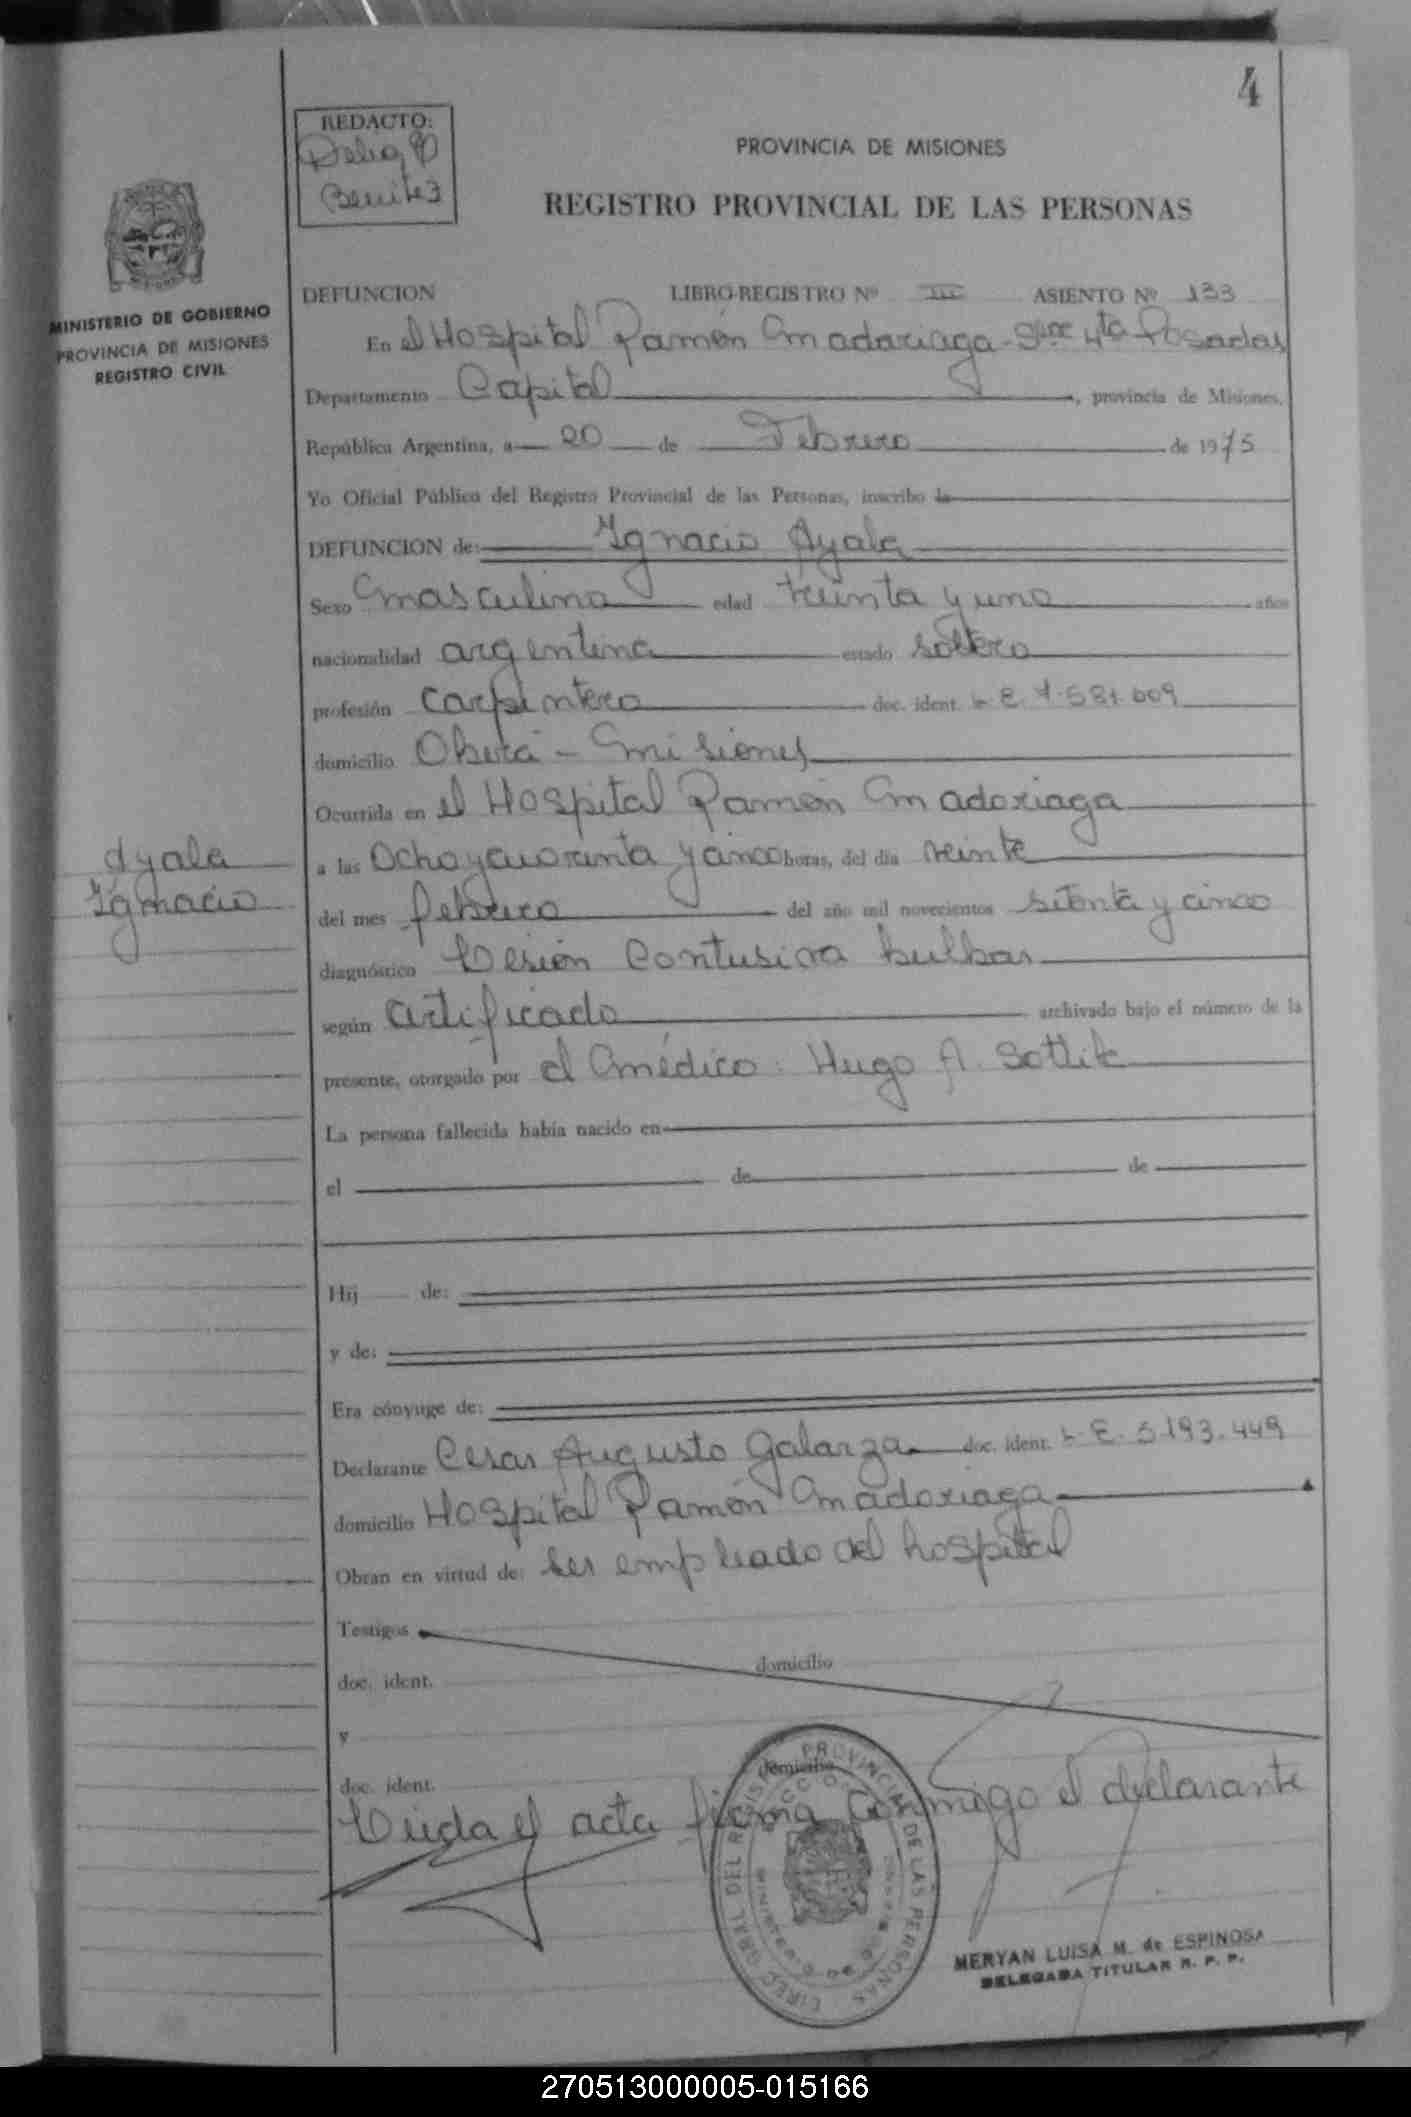 4
REDACTO:
Delia
Benitez
PROVINCIA DE MISIONES
REGISTRO PROVINCIAL DE LAS PERSONAS
MINISTERIO DE GOBIERNO
PROVINCIA DE MISIONES
REGISTRO CIVIL
DEFUNCION LIBRO-REGISTRO Nº III ASIENTO Nº 133
En el Hospital Ramón Madariaga Secc 4ta Posadas
Departamento Capital, provincia de Misiones,
República Argentina, a 20 de Febrero de 1975
Yo Oficial Público del Registro Provincial de las Personas, inscribo la
DEFUNCION de: Ignacio Ayala
Sexo masculino edad treinta y uno años
nacionalidad argentina estado soltero
profesión carpintero doc. ident. L.E. 7.581.009
domicilio Oberá - Misiones
Ocurrida en el Hospital Ramón Madariaga
Ayala
Ignacio
a las Ocho y cuarenta y cinco horas, del día veinte
del mes febrero del año mil novecientos setenta y cinco
diagnóstico Lesión Contusiva bulbar
según certificado archivado bajo el número de la
presente, otorgado por el médico: Hugo A.
La persona fallecida había nacido en
el de de
Hij de:
y de:
Era cónyuge de:
Declarante Cesar Augusto Galarza doc. ident. L.E. 5.193.449
domicilio Hospital Ramón Madariaga
Obran en virtud de: ser empleado del hospital
Testigos
domicilio
doc. ident.
y
domicilio
doc. ident.
Leída el acta firma conmigo el declarante
DIREC. GRAL. DEL REGIST. PROVINCIAL DE LAS PERSONAS
MERYAN LUISA M. de ESPINOSA
DELEGADA TITULAR R. P. P.
270513000005-015166